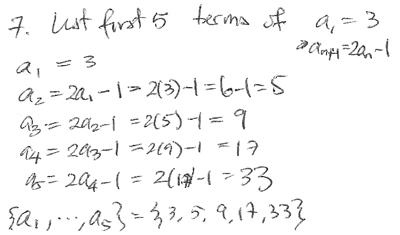 7. List first 5 terms of a₁ = 3
→ aₙ₊₁=2aₙ-1
a₁ = 3
a₂ = 2a₁ - 1 = 2(3)-1 = 6-1 = 5
a₃ = 2a₂-1 = 2(5)-1 = 9
a₄ = 2a₃-1 = 2(9)-1 = 17
a₅ = 2a₄-1 = 2(17)-1 = 33
{a₁, ..., a₅} = {3, 5, 9, 17, 33}